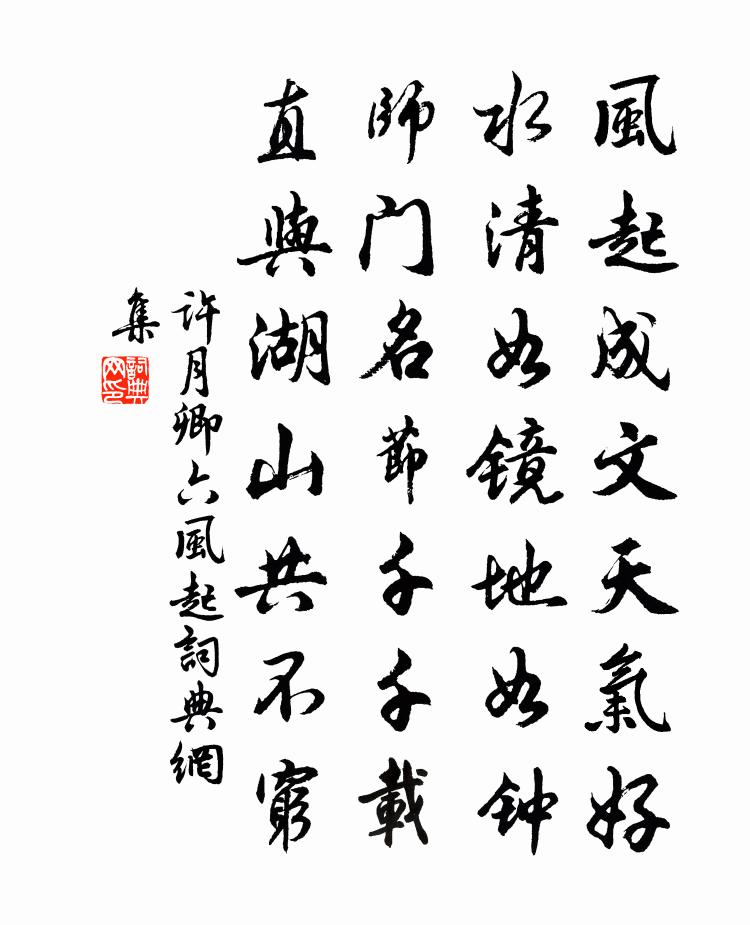 風起成文天氣好
水清如镜地如钟
師门名節千千載
直與湖山共不窮
許月卿六風起詞典網
集
詞典
网印